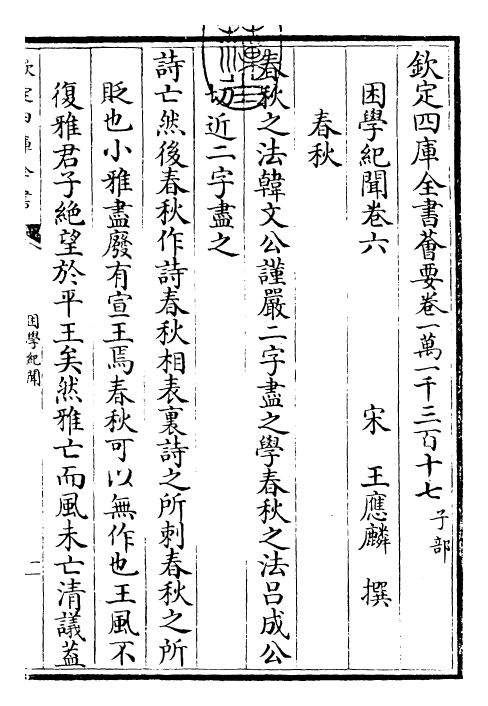 欽定四庫全書薈要卷一萬一千三百十七子部
困學紀聞卷六
宋王應麟撰
春秋
春秋之法韓文公謹嚴二字盡之學春秋之法呂成公
切近二字盡之
詩亡然後春秋作詩春秋相表裏詩之所刺春秋之所
貶也小雅盡廢有宣王焉春秋可以無作也王風不
復雅君子絶望於平王矣然雅亡而風未亡清議葢
欽定四庫全書
困學紀聞